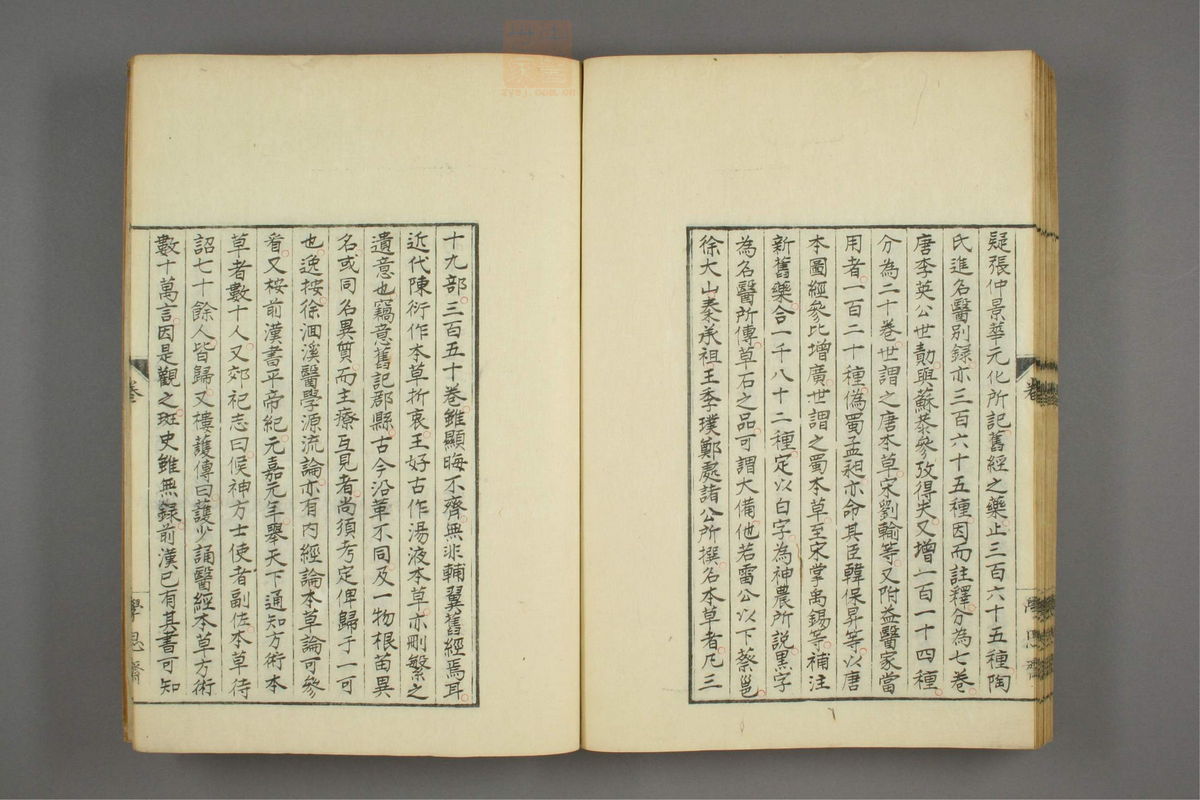 疑張仲景華元化所記舊經之藥止三百六十五種陶
氏進名醫別録亦三百六十五種因而註釋分為七卷
唐李英公世勣與蘇恭參攷得失又增一百一十四種
分為二十卷世謂之唐本草宋劉翰等又附益醫家當
用者一百二十種偽蜀孟昶亦命其臣韓保昇等以唐
本圖經參比增廣世謂之蜀本草至宋掌禹錫等補注
新舊藥合一千八十二種定以白字為神農所説黑字
為名醫所傳草石之品可謂大備他若雷公以下蔡邕
徐大山秦承祖王季璞鄭虔諸公所撰名本草者凡三
十九部三百五十卷雖顯晦不齊無非輔翼舊經焉耳
近代陳衍作本草折衷王好古作湯液本草亦刪繁之
遺意也竊意舊記郡縣古今沿革不同及一物根苗異
名或同名異質而主療互見者尚須考定俾歸于一可
也逸按徐洄溪醫學源流論亦有内經論本草論可參
㸔又桉前漢書平帝紀元嘉元年舉天下通知方術本
草者數十人又郊祀志曰候神方士使者副佐本草待
詔七十餘人皆歸又樓護傳曰護少誦醫經本草方術
數十萬言因是觀之班史雖無録前漢已有其書可知
卷
學思齋
zysj.com.cn